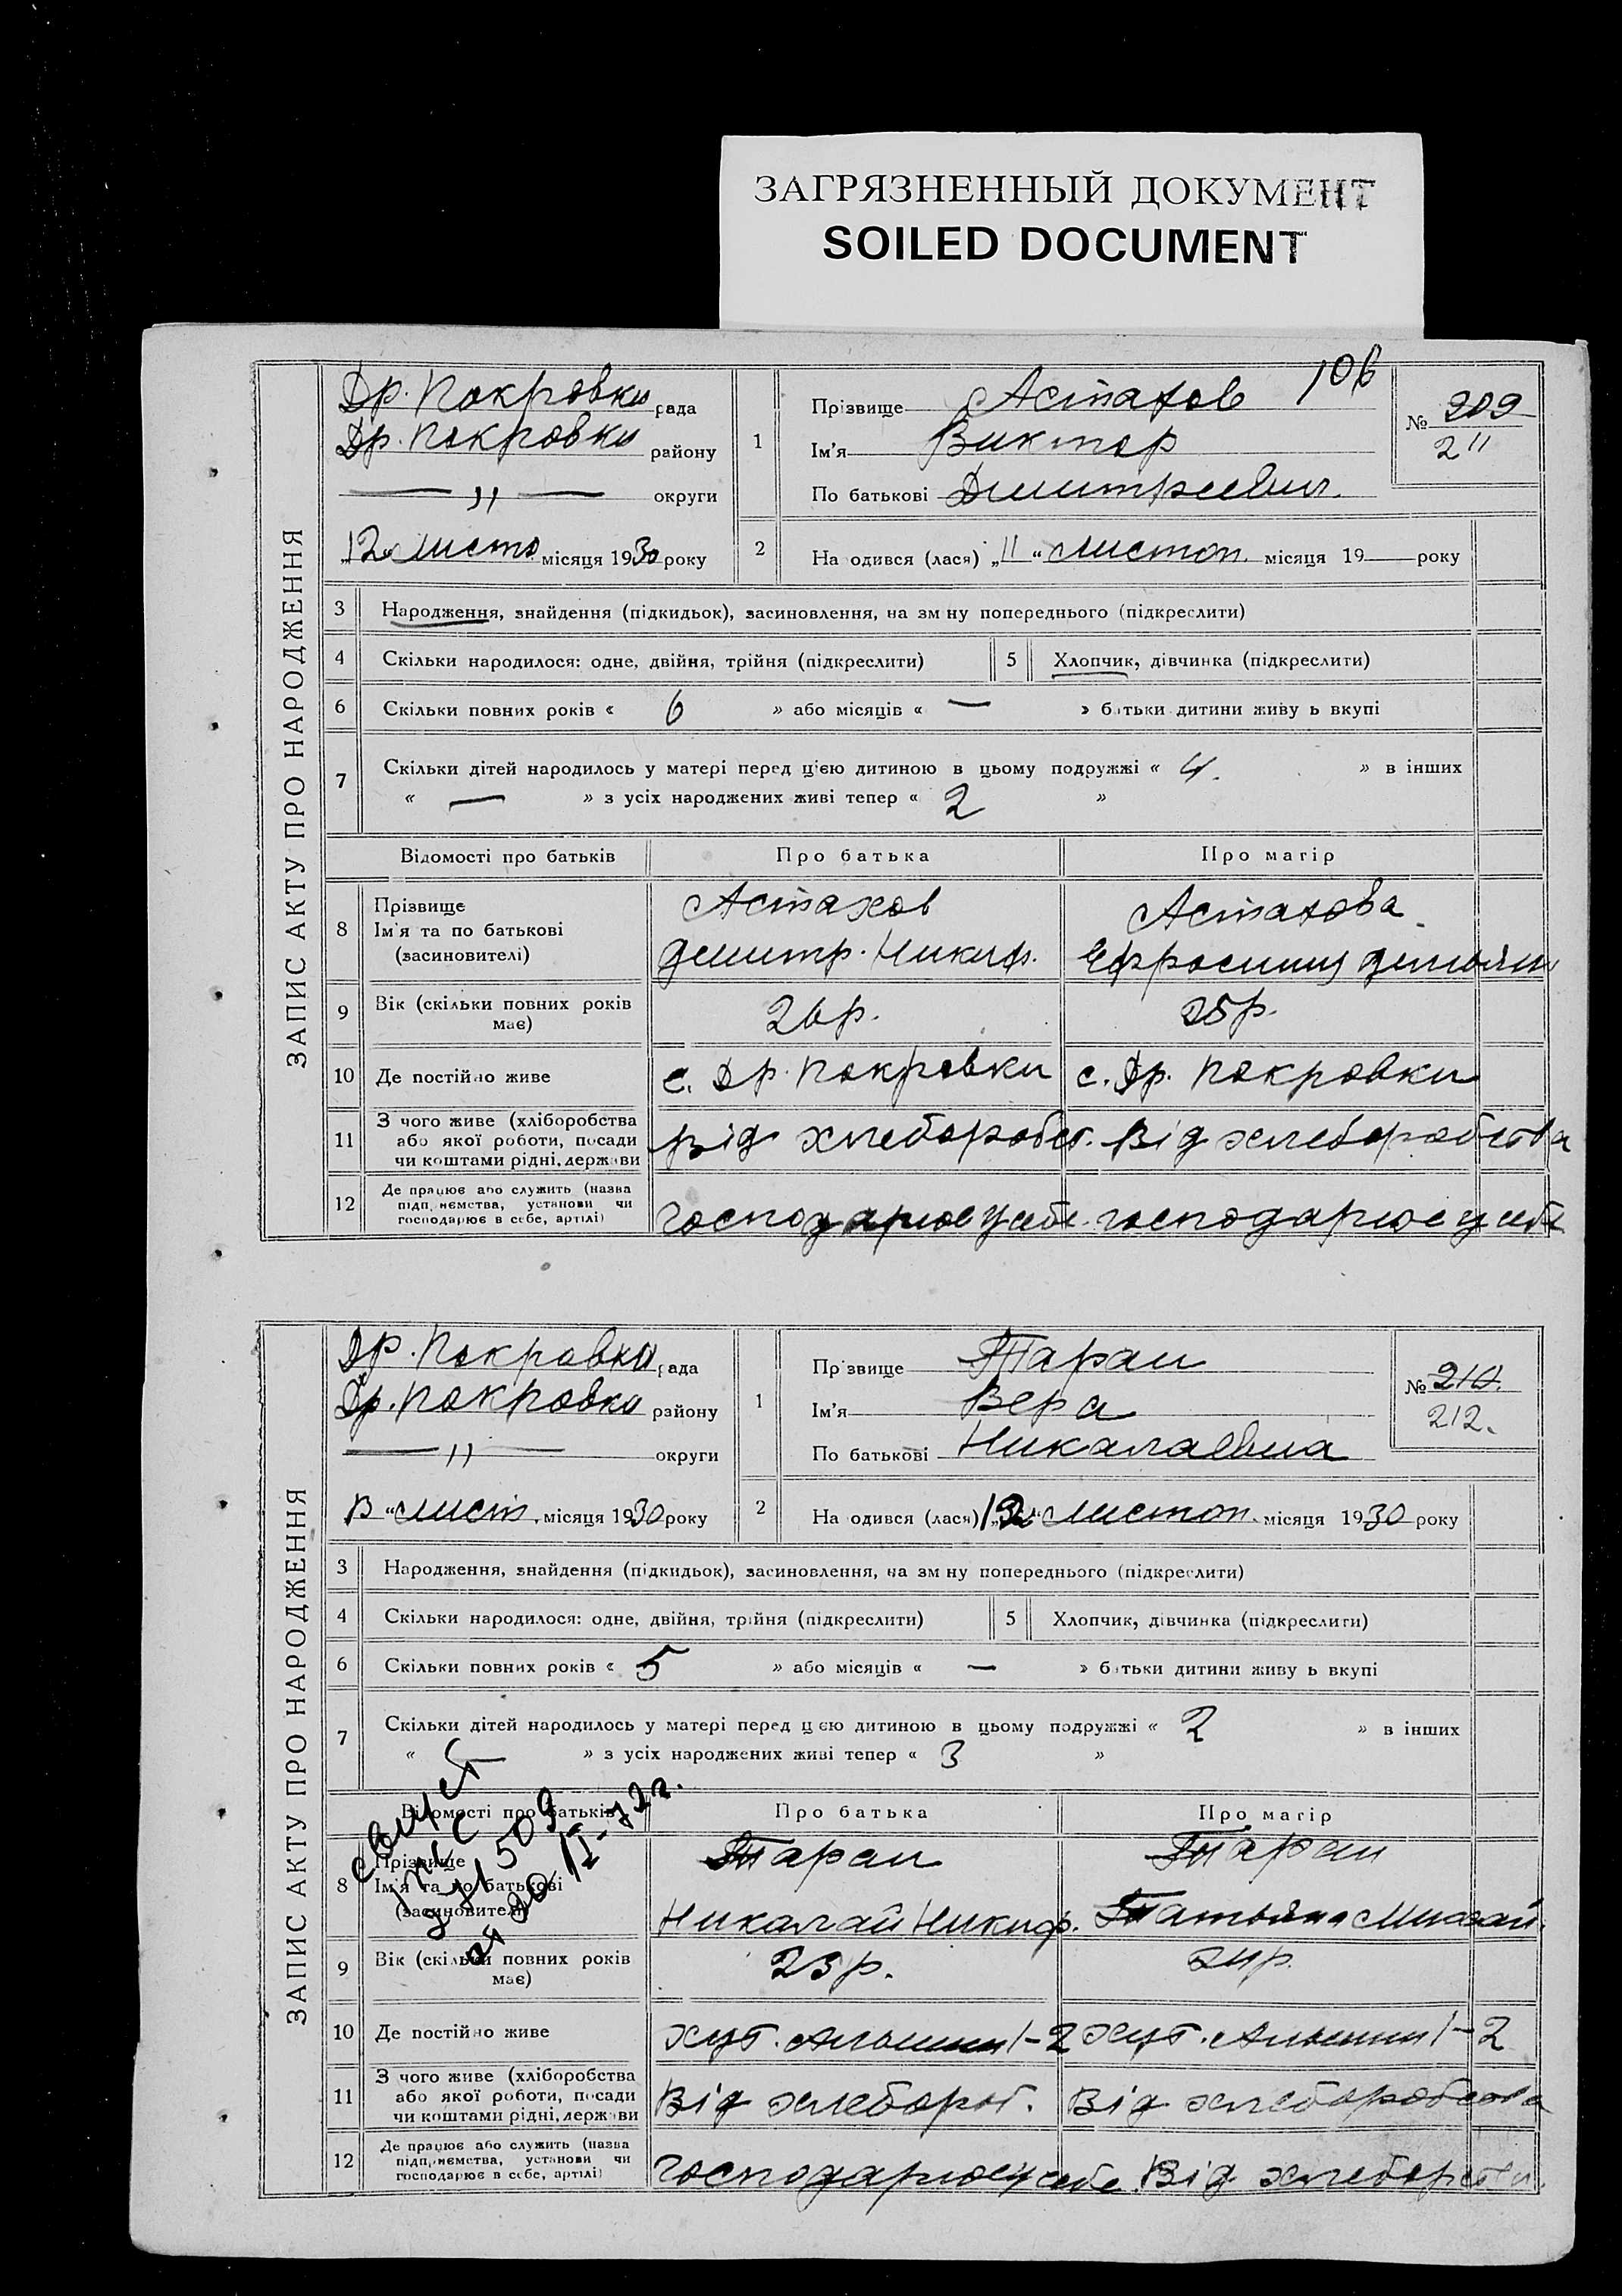 ЗАГРЯЗНЕННЫЙ ДОКУМЕНТ
SOILED DOCUMENT
106
ЗАПИС АКТУ ПРО НАРОДЖЕННЯ
Др. Покровки рада
Др. Покровки району
— " — округи
„12“ листо місяця 1930 року
1
Прізвище Астахов
Ім'я Виктор
По батькові Дмитреевич.
№ 209
211
2 На одився (лася) „11“ листоп. місяця 19 — року
3 Народження, знайдення (підкидьок), засиновлення, на зм ну попереднього (підкреслити)
4 Скільки народилося: одне, двійня, трійня (підкреслити) 5 Хлопчик, дівчинка (підкреслити)
6 Скільки повних років « 6 » або місяців « — » батьки дитини живу ь вкупі
7 Скільки дітей народилось у матері перед цією дитиною в цьому подружжі « 4. » в інших
« — » з усіх народжених живі тепер « 2 »
Відомості про батьків Про батька Про матір
8 Прізвище
Ім'я та по батькові
(засновителі)
Астахов
Дмитр. Никиф.
Астахова
9 Вік (скільки повних років
має)
26р. 25р.
10 Де постійно живе с. Др. Покровки с. Др. Покровки
11 З чого живе (хліборобства
або якої роботи, посади
чи коштами рідні, держави
від хлеборобст. від хлеборобства
12 Де працює або служить (назва
підприємства, установи чи
господарює в себе, артілі)
господарює у себе. господарює у себе
ЗАПИС АКТУ ПРО НАРОДЖЕННЯ
Др. Покровки рада
Др. Покровки району
— " — округи
лист. місяця 1930 року
1
Прізвище Таран
Ім'я Вера
По батькові Николаевна
№ 210.
212.
2 На одився (лася) листоп. місяця 1930 року
3 Народження, знайдення (підкидьок), засиновлення, на зм ну попереднього (підкреслити)
4 Скільки народилося: одне, двійня, трійня (підкреслити) 5 Хлопчик, дівчинка (підкреслити)
6 Скільки повних років « 5 » або місяців « — » батьки дитини живу ь вкупі
7 Скільки дітей народилось у матері перед цією дитиною в цьому подружжі « 2 » в інших
« — » з усіх народжених живі тепер « 3 »
Відомості про батьків Про батька Про матір
8 Прізвище
Ім'я та по батькові
(засиновителі)
Таран
Николай Никиф.
Таран
Татьяна Михай.
9 Вік (скільки повних років
має)
23р. 24р.
10 Де постійно живе хут. 1-2 хут. 1-2
11 З чого живе (хліборобства
або якої роботи, посади
чи коштами рідні, держави
Від хлебороб. Від хлеборобства
12 Де працює або служить (назва
підприємства, установи чи
господарює в себе, артілі)
Господарює у себе. Від хлеборобства.